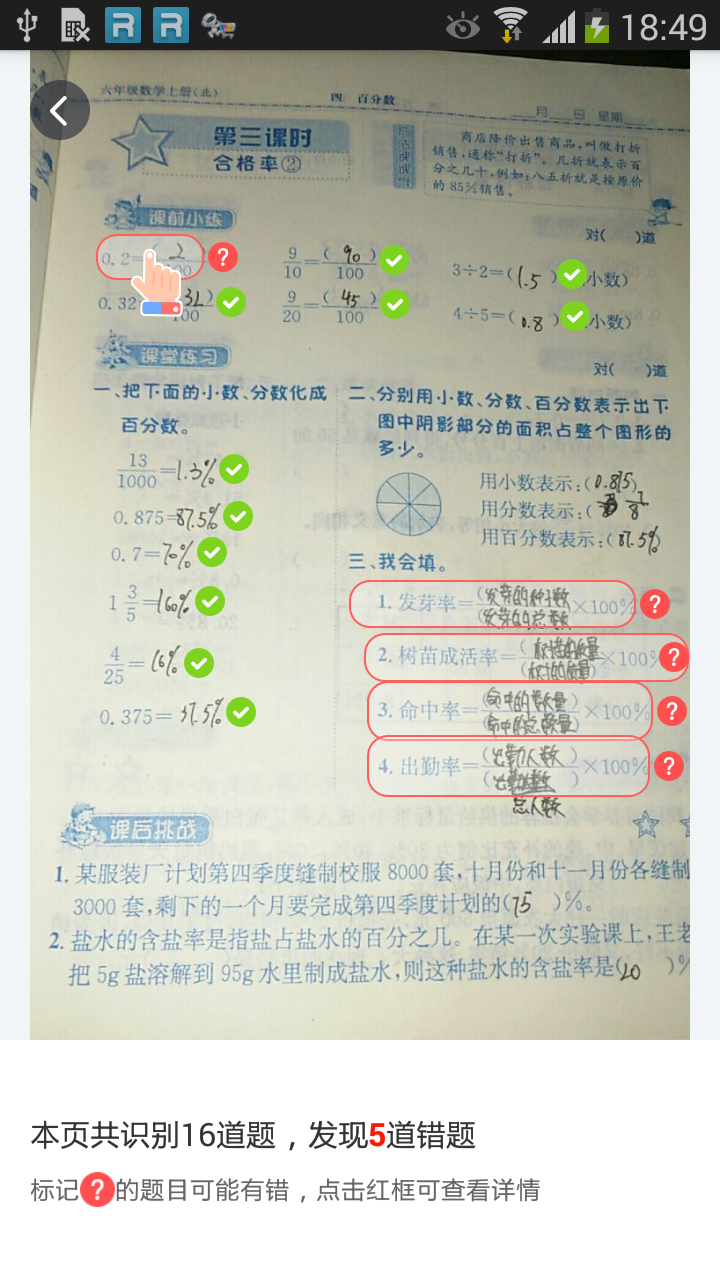 18:49
六年级数学上册(北)
四 百分数
月 日 星期
第三课时
合格率②
商店降价出售商品,叫做打折
销售,通称“打折”。几折就表示百
分之几十,例如:八五折就是按原价
的85%销售。
课前小练
对( )道
0.2=
2
9/10=(90)/100
3÷2=(1.5)
小数)
0.32
32)/100
9/20=(45)/100
4÷5=(0.8)
小数)
课堂练习
对( )道
一、把下面的小数、分数化成
百分数。
13/1000=1.3%
0.875=87.5%
0.7=70%
1 3/5=160%
4/25=16%
0.375=37.5%
二、分别用小数、分数、百分数表示出下
图中阴影部分的面积占整个图形的
多少。
用小数表示:(0.875)
用分数表示:( 7/8
用百分数表示:(87.5%)
三、我会填。
1.发芽率=(发芽的种子数
(发芽的总数
×100%
2.树苗成活率=
×100%
3.命中率=(命中的数量)
(命中的总数量)
×100%
4.出勤率=(出勤人数)
×100%
总人数
课后挑战
1.某服装厂计划第四季度缝制校服8000套,十月份和十一月份各缝制
3000套,剩下的一个月要完成第四季度计划的(75 )%。
2.盐水的含盐率是指盐占盐水的百分之几。在某一次实验课上,王老
把5g盐溶解到95g水里制成盐水,则这种盐水的含盐率是(20 )%
本页共识别16道题，发现5道错题
标记?的题目可能有错，点击红框可查看详情